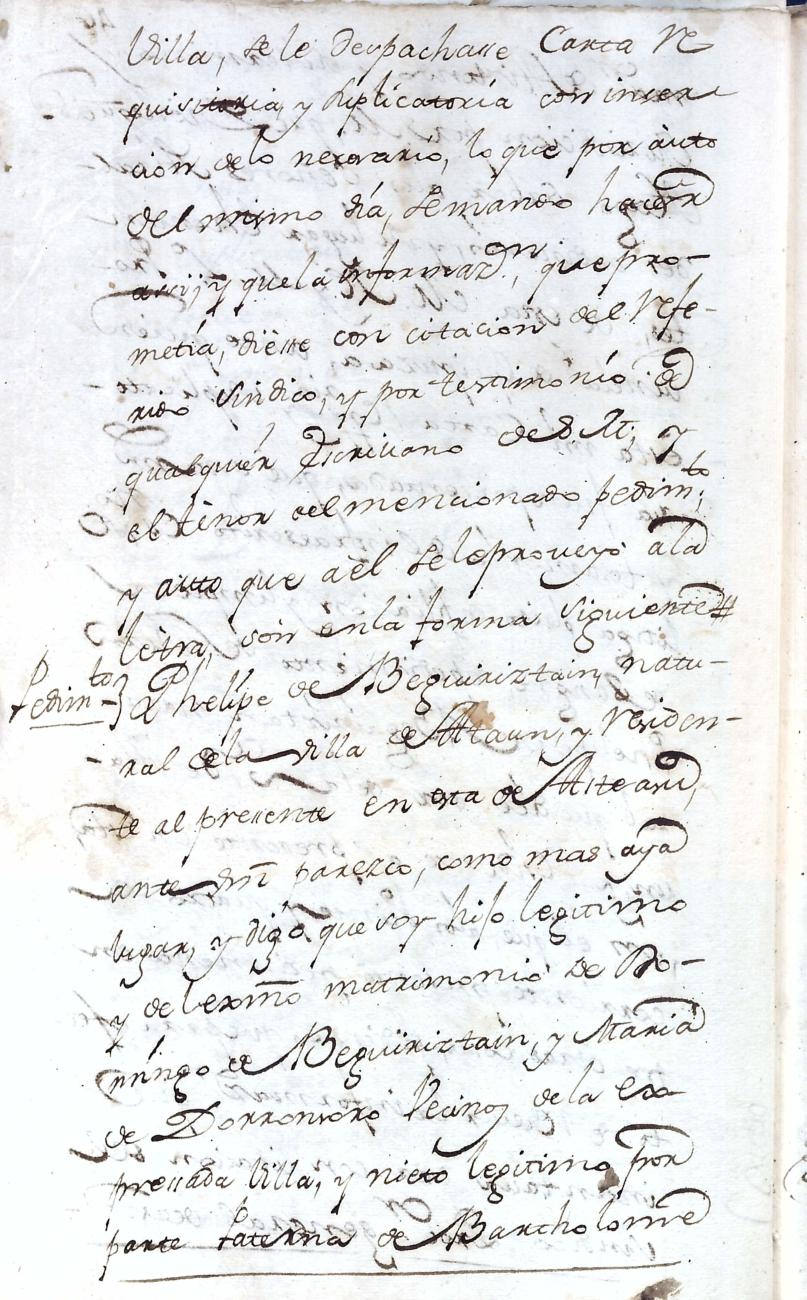 Villa, se le despachasse Carta Re
quisitoria, y suplicatoria con inser
cion delo nezesario, lo que por auto
del mismo dia, semando hacer
assi, y quela informaz.on, que pro-
metia, diesse con citacion del Refe-
rido Sindico, y por testimonio de
qualquier Escrivano de S. M; y
el tenor del mencionado pedim.to;
y auto que a èl seleproveyò ala
letra, son enla forma siguiente #
Pedim.to } Phelipe de Beguiriztain, natu-
ral dela villa de Ataun, y Residen-
te al pressente en esta de Asteasu,
ante Vm parezco, como mas aya
lugar, y digo que soy hijo legitimo
y de lexmo matrimonio de Do-
mingo de Beguiriztain, y Maria
de Dorronsoro Vecinos dela ex-
pressada Villa, y nieto legitimo por
parte Paterna de Bartholome